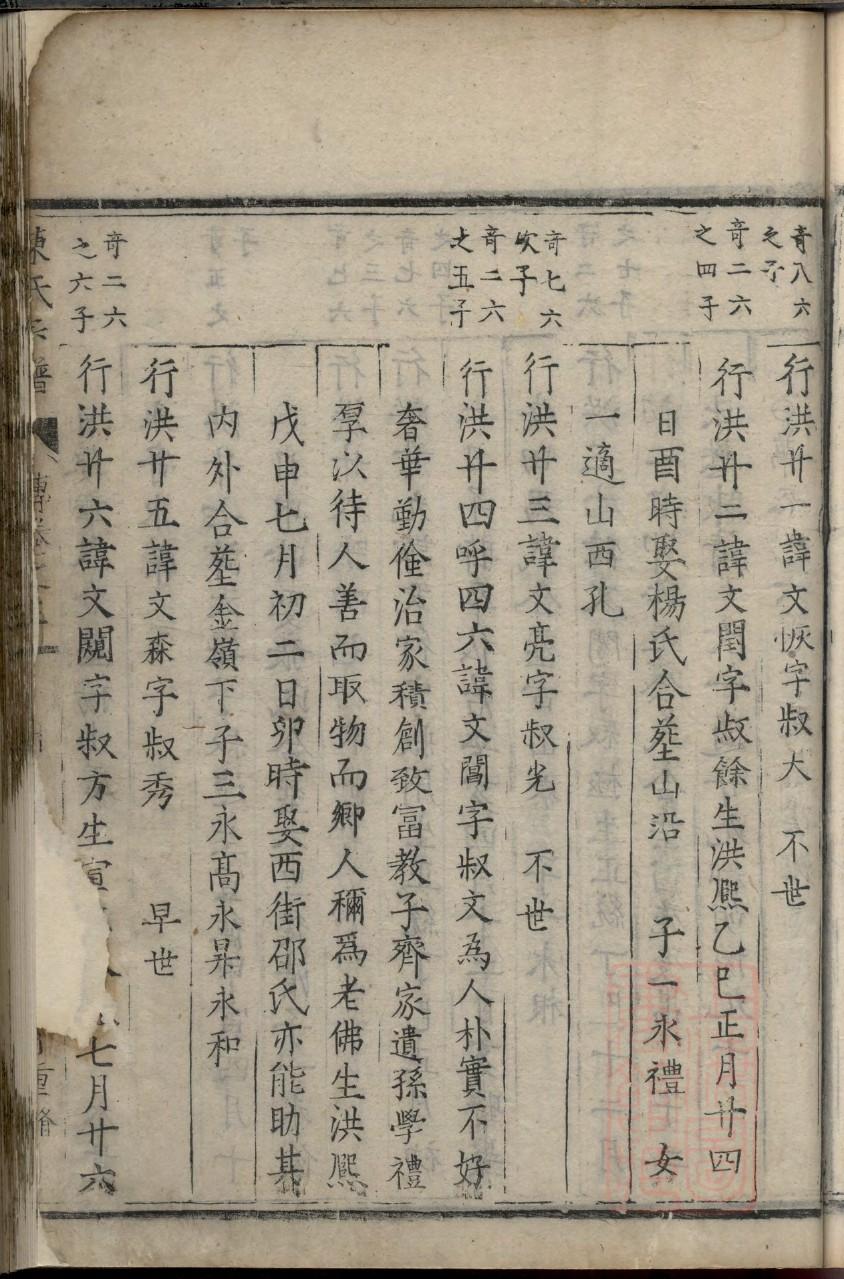 奇八六
之子
行洪廿一諱文恢字叔大　不世
奇二六
之四子
行洪廿二諱文閏字叔餘生洪熈乙巳正月廿四
日酉時娶楊氏合塟山沿　子一永禮　女
一適山西孔
奇七六
次子
行洪廿三諱文亮字叔光　不世
奇二六
之五子
行洪廿四呼四六諱文閶字叔文為人朴實不好
奢華勤儉治家積創致富教子齊家遺孫學禮
厚以待人善而取物而鄉人稱爲老佛生洪熈
戊申七月初二日卯時娶西街邵氏亦能助其
内外合塟金嶺下子三永高永昇永和
行洪廿五諱文森字叔秀　早世
奇二六
之六子
行洪廿六諱文闕字叔方生宣七月廿六
陳氏宗譜
重脩